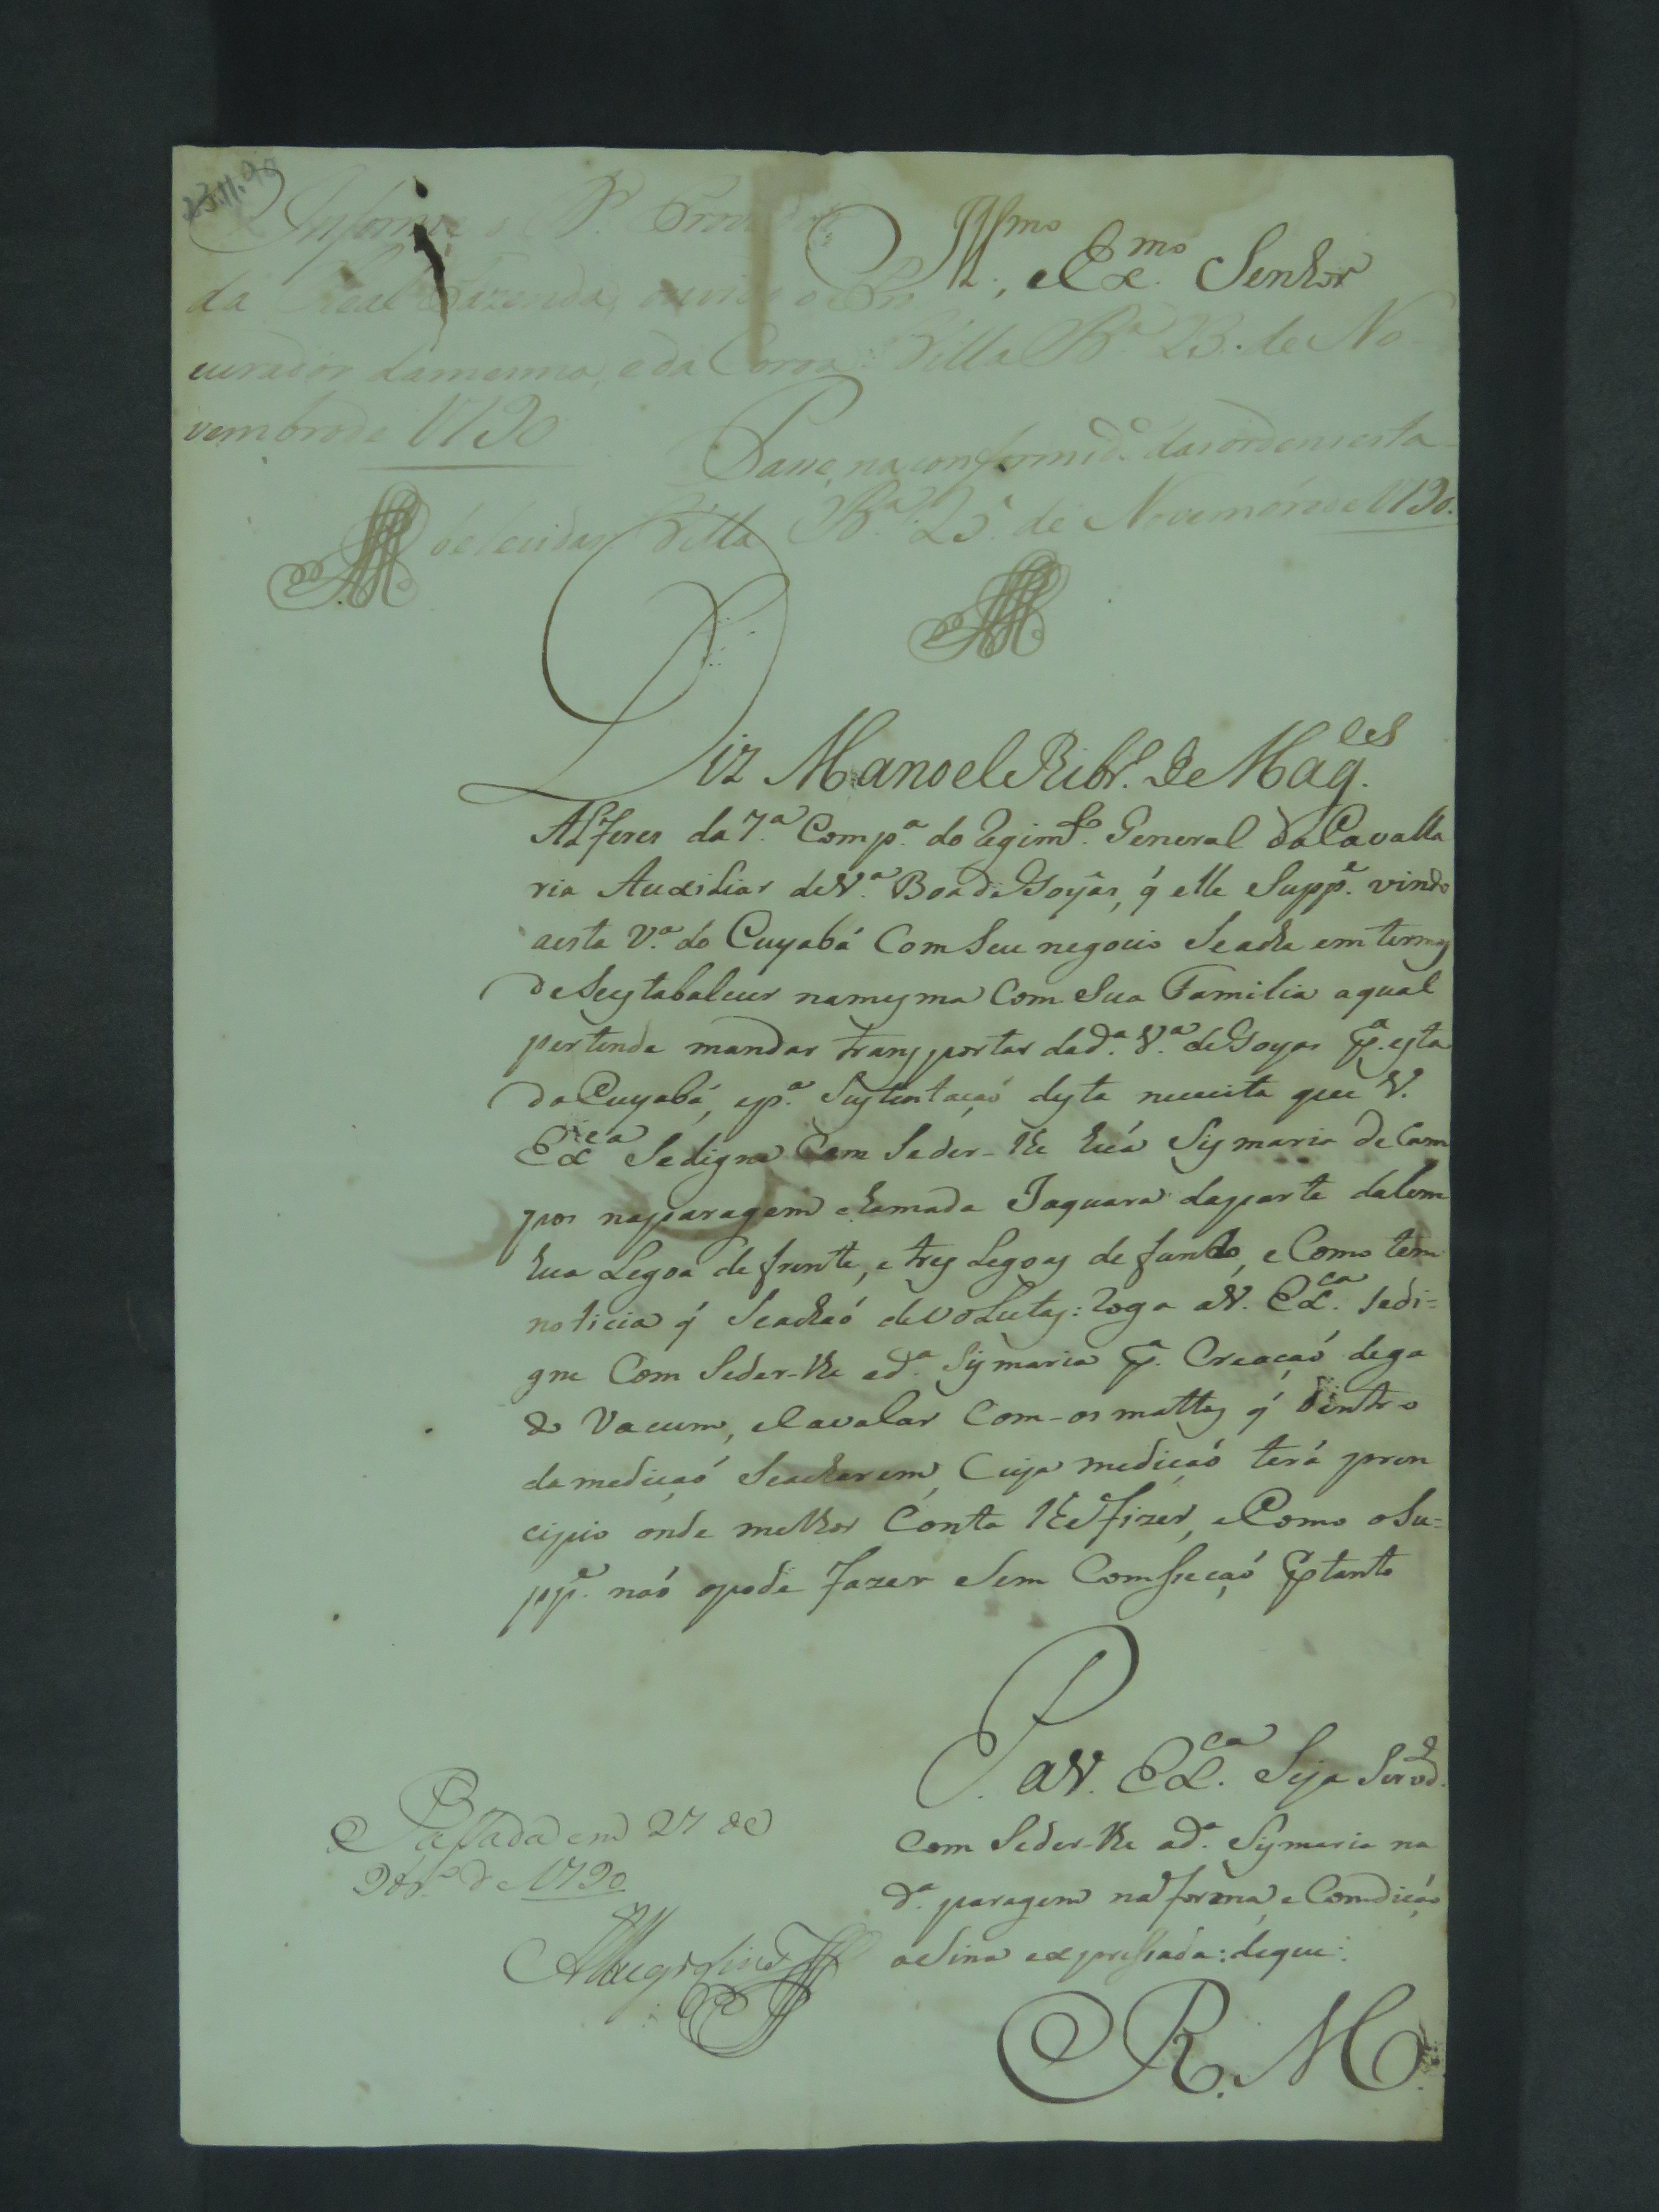 23.11.90
Informe o Sr. Provedor
da Real Fazenda, ouvido o Pro
curador damesma, e da Coroa: Villa Bª 23. de No-
vembro de 1790
Illmo, e Exmo Senhor
Passe, na conformide. das ordens esta-
belecidas Villa Bª. 25. de Novembro de 1790.
Diz Manoel Ribrº. De Magles.
Alferes da 7.ª Compª. do Regimto. General da Cavalla
ria Auxiliar de Vª. Boa de Goyâs, q́ elle Suppe. vindo
aesta Vª. do Cuyabá Com Seu negocio Seacha em termos
de Seystabalecer namesma Com Sua Familia aqual
pertende mandar transportar dadª. Vª. de Goyas pª. esta
do Cuyabá, epª. Sustentaçaó desta neceita que V.
Exca Sedigne Com Seder-lhe huá Sismaria de Cam
pos naparagem chamada Jaquara daparte dalem
hua Legoa de frente, e tres Legoas de fundo, e Como tem
noticia q́ Seachaó devolutas: Roga aV. Exca. Sedi=
gne Com Seder-lhe adª. Sismaria pª. Creaçaó dega
do Vacum, eCavalar Com-os mattos q́ dentro
damediçaó Seacharem, Cuja mediçaó terá prin
cipio onde melhor Conta lhe fizer, eComo oSu=
ppe. naó opode fazer Sem Comsseçaó Ptanto
P. aV. Exca. Seja Servdº.
Com Seder-lhe adª. Sismaria na
dª. paragem na forma, e Comdiçaó
aSima expressada: deque:
E. R. M.
Passada em 27 de
9brº. de 1790